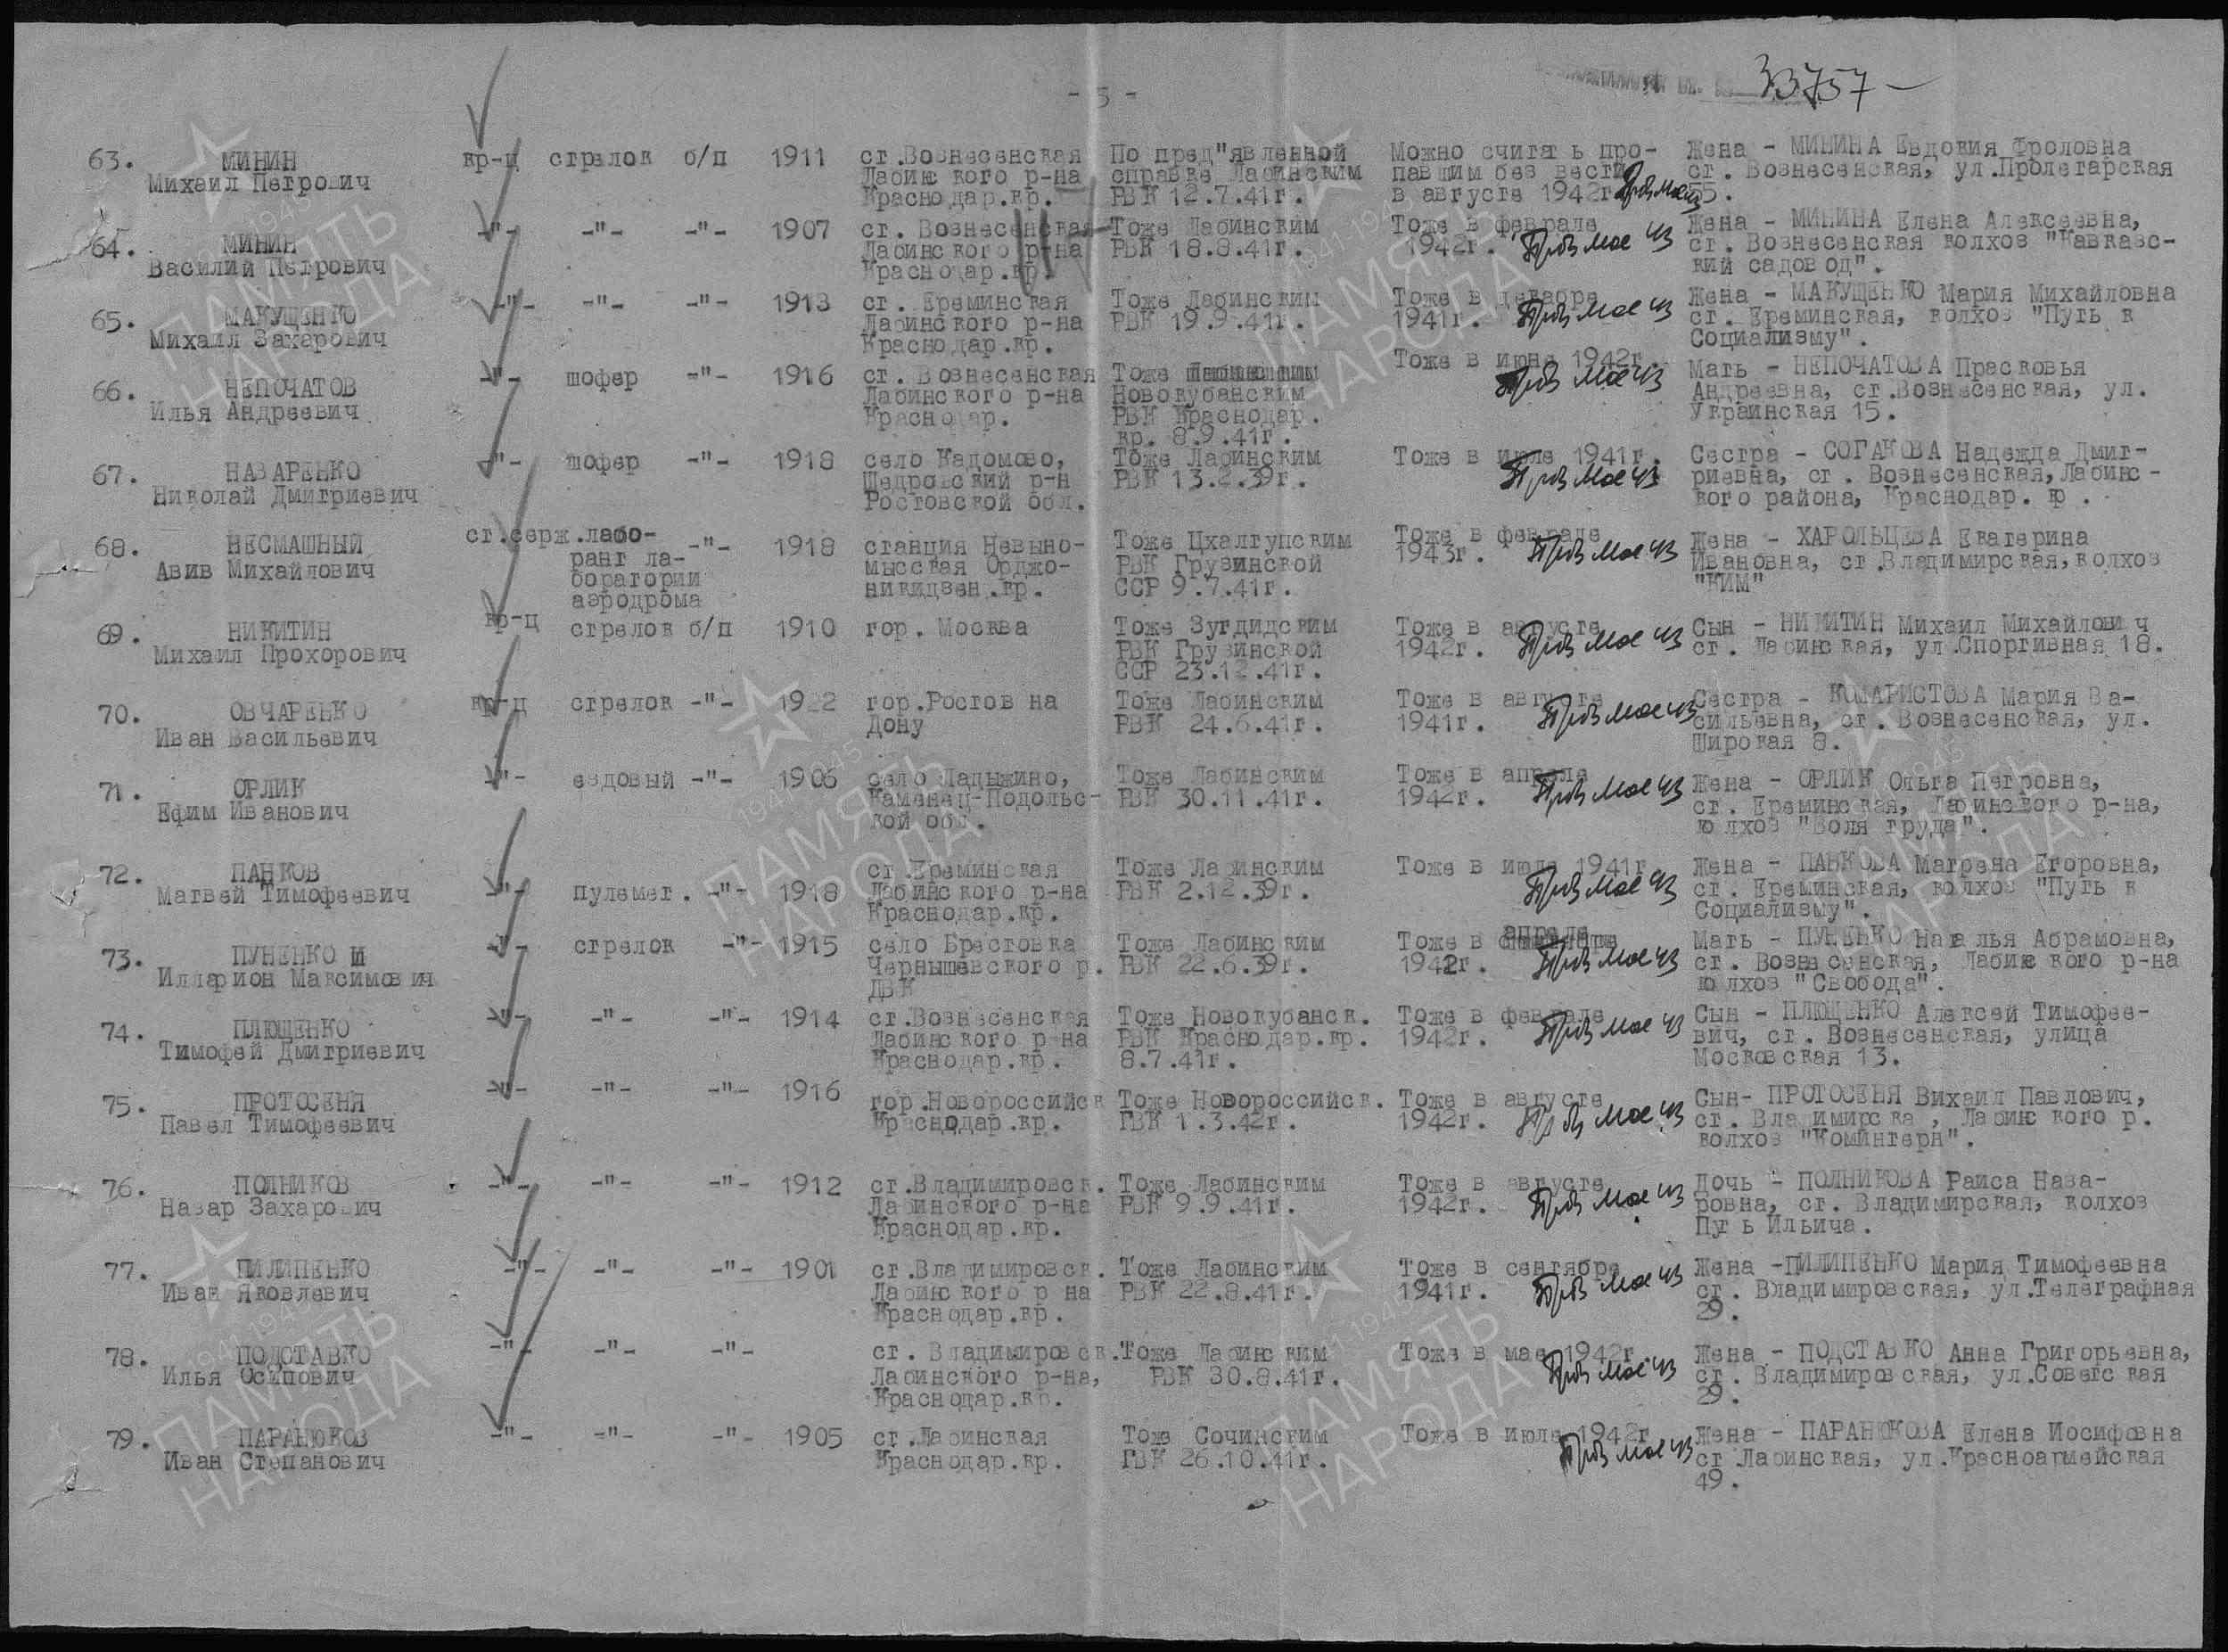 33757 -
- 5 -
63. МИНИН Михаил Петрович кр-ц стрелок б/п 1911 ст.Вознесенская Лабинского р-на Краснодар.кр. По пред"явленной справке Лабинским РВК 12.7.41г. Можно считать пропавшим без вести в августе 1942г. Жена - МИНИНА Евдокия Фроловна ст. Вознесенская, ул.Пролетарская 55.
64. МИНИН Василий Петрович -"- -"- -"- 1907 ст. Вознесенская Лабинского р-на Краснодар.кр. Тоже Лабинским РВК 18.8.41г. Тоже в феврале 1942г. Жена - МИНИНА Елена Алексеевна, ст. Вознесенская колхоз "Кавказский садовод".
65. МАКУЩЕНКО Михаил Захарович -"- -"- -"- 1913 ст. Ереминская Лабинского р-на Краснодар.кр. Тоже Лабинским РВК 19.9.41г. Тоже в декабре 1941г. Жена - МАКУЩЕНКО Мария Михайловна ст. Ереминская, колхоз "Путь к Социализму".
66. НЕПОЧАТОВ Илья Андреевич -"- шофер -"- 1916 ст. Вознесенская Лабинского р-на Краснодар. Тоже Новокубанским РВК Краснодар. кр. 8.9.41г. Тоже в июне 1942г. Мать - НЕПОЧАТОВА Прасковья Андреевна, ст.Вознесенская, ул. Украинская 15.
67. НАЗАРЕНКО Николай Дмитриевич -"- шофер -"- 1918 село Кадомово, Щедровский р-н Ростовской обл. Тоже Лабинским РВК 13.2.39г. Тоже в июле 1941г. Сестра - СОГАКОВА Надежда Дмитриевна, ст. Вознесенская, Лабинского района, Краснодар. кр.
68. НЕСМАШНЫЙ Авив Михайлович ст.серж. лаборант лаборатории аэродрома -"- 1918 станция Невыномысская Орджоникидзен.кр. Тоже Цхалтупским РВК Грузинской ССР 9.7.41г. Тоже в феврале 1943г. Жена - ХАРОЛЬЦЕВА Екатерина Ивановна, ст.Владимирская, колхоз "КИМ"
69. НИКИТИН Михаил Прохорович кр-ц стрелок б/п 1910 гор. Москва Тоже Зугдидским РВК Грузинской ССР 23.12.41г. Тоже в августе 1942г. Сын - НИКИТИН Михаил Михайлович ст. Лабинская, ул.Спортивная 18.
70. ОВЧАРЕНКО Иван Васильевич кр-ц стрелок -"- 1922 гор.Ростов на Дону Тоже Лабинским РВК 24.6.41г. Тоже в августе 1941г. Сестра - КОМАРИСТОВА Мария Васильевна, ст. Вознесенская, ул. Широкая 8.
71. ОРЛИК Ефим Иванович -"- ездовый -"- 1906 село Ладыжино, Каменец-Подольской обл. Тоже Лабинским РВК 30.11.41г. Тоже в апреле 1942г. Жена - ОРЛИК Ольга Петровна, ст. Ереминская, Лабинского р-на, колхоз "Воля труда".
72. ПАНКОВ Матвей Тимофеевич -"- пулемет. -"- 1918 ст.Ереминская Лабинского р-на Краснодар.кр. Тоже Лабинским РВК 2.12.39г. Тоже в июле 1941г. Жена - ПАНКОВА Матрена Егоровна, ст. Ереминская, колхоз "Путь к Социализму".
73. ПУНЕНКО Илларион Максимович -"- стрелок -"- 1915 село Брестовка Чернышевского р. ДВК Тоже Лабинским РВК 22.6.39г. Тоже в апреле 1942г. Мать - ПУНЕНКО Наталья Абрамовна, ст. Вознесенская, Лабинского р-на колхоз "Свобода".
74. ПЛЮЩЕНКО Тимофей Дмитриевич -"- -"- -"- 1914 ст.Вознесенская Лабинского р-на Краснодар.кр. Тоже Новокубанск. РВК Краснодар.кр. 8.7.41г. Тоже в феврале 1942г. Сын - ПЛЮЩЕНКО Алексей Тимофеевич, ст. Вознесенская, улица Московская 13.
75. ПРОТОСЕНЯ Павел Тимофеевич -"- -"- -"- 1916 гор.Новороссийск Краснодар.кр. Тоже Новороссийск. ГВК 1.3.42г. Тоже в августе 1942г. Сын- ПРОТОСЕНЯ Вихаил Павлович, ст. Владимирска , Лабинского р. колхоз "Коминтерн".
76. ПОЛНИКОВ Назар Захарович -"- -"- -"- 1912 ст.Владимировск. Лабинского р-на Краснодар.кр. Тоже Лабинским РВК 9.9.41г. Тоже в августе 1942г. Дочь - ПОЛНИКОВА Раиса Назаровна, ст. Владимирская, колхоз Путь Ильича.
77. ПИЛИПЕНКО Иван Яковлевич -"- -"- -"- 1901 ст.Владимировск. Лабинского р на Краснодар.кр. Тоже Лабинским РВК 22.8.41г. Тоже в сентябре 1941г. Жена -ПИЛИПЕНКО Мария Тимофеевна ст. Владимировская, ул.Телеграфная 29.
78. ПОДСТАВКО Илья Осипович -"- -"- -"- ст. Владимировск. Лабинского р-на, Краснодар.кр. Тоже Лабинским РВК 30.8.41г. Тоже в мае 1942г. Жена - ПОДСТАВКО Анна Григорьевна, ст. Владимировская, ул.Советская 29.
79. ПАРАНЮКОВ Иван Степанович -"- -"- -"- 1905 ст.Лабинская Краснодар.кр. Тоже Сочинским ГВК 26.10.41г. Тоже в июле 1942г. Жена - ПАРАНЮКОВА Елена Иосифовна ст Лабинская, ул.Красноармейская 49.
1941 1945
ПАМЯТЬ
НАРОДА